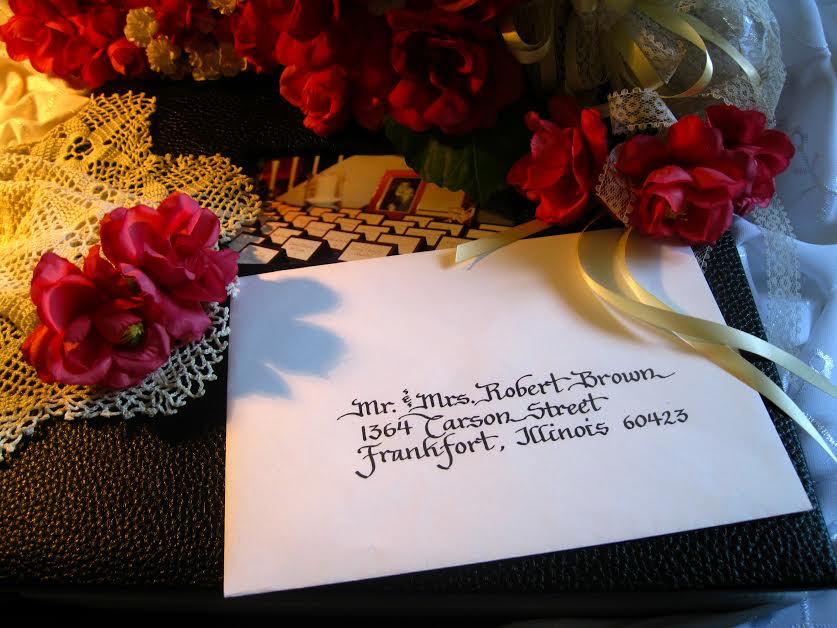 Mr. & Mrs. Robert Brown
1364 Carson Street
Frankfort, Illinois 60423